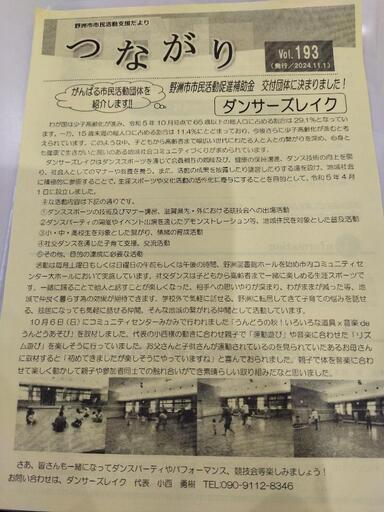 野洲市市民活動支援だより
つながり
Vol. 193
(発行/2024.11.1)
がんばる市民活動団体を
紹介します!!
野洲市市民活動促進補助金 交付団体に決まりました!
ダンサーズレイク
わが国は少子高齢化が進み、令和5年10月時点で65歳以上の総人口に占める割合は29.1%となってい
ます。一方、15歳未満の総人口に占める割合は11.4%にとどまっており、今後さらに少子高齢化が進むと考
えられています。このような中、子どもから高齢者まで幅広い世代にわたる人と人との繋がりを深め、心身と
も健康で生きがいと潤いのある地域社会コミュニティづくりが求められています。
ダンサーズレイクはダンススポーツを通じて会員相互の親睦及び、健康の保持増進、ダンス技術の向上を図
り、社会人としてのマナーや教養を養う。また、活動の成果を披露したり講習したりする場を設け、地域社会
に積極的に参画することで、生涯スポーツや文化活動の活性化に寄与することを目的として、令和5年4月
1日に設立しました。
主な活動内容は下記の通りです。
①ダンススポーツの技術及びマナー講習、滋賀県内・外における競技会への出場活動
②ダンスパーティの開催やイベント出演を通じたデモンストレーション等、地域住民を対象とした普及活動
③小・中・高校生を対象とした繋がり、情緒の育成活動
④社交ダンスを通じた子育て支援、交流活動
⑤その他、目的の達成に必要な活動
活動は毎月土曜日もしくは日曜日の午前もしくは午後の時間、野洲図書館ホールを始め市内コミュニティセ
ンター大ホールにおいて実施しています。社交ダンスは子どもから高齢者まで一緒に楽しめる生涯スポーツで
す。一緒に踊ることで他人と話すことが楽しくなった、相手への思いやりが深まり、わがままが減った等、地
域で仲良く暮らす為の効果が期待できます。学校外で気軽に話せる、野洲に転居してきて子育ての悩みを話せ
る、趣味になっても気軽に話せる仲間、そんな地域の繋がれる仲間として活動しています。
10月6日(日)にコミュニティセンターみかみで行われました「うんどうの秋!いろいろな道具×音楽de
うんどうあそび」を取材しました。代表の小西様の動きに合わせ親子で「運動遊び」や音楽に合わせた「リズ
ム遊び」を楽しそうに行っていました。お父さんと子供さんが運動されているのを見られていたあるお母さん
に取材すると「初めてきましたが楽しそうにやっていますね」と喜んでおられました。親子で体を音楽に合わ
せて楽しく動かして親子や参加者同士での触れ合いができ素晴らしい取り組みだなと思いました。
さあ、皆さんも一緒になってダンスパーティやパフォーマンス、競技会等楽しみましょう!
お問い合わせは、ダンサーズレイク 代表 小西 勇樹 TEL:090-9112-8346